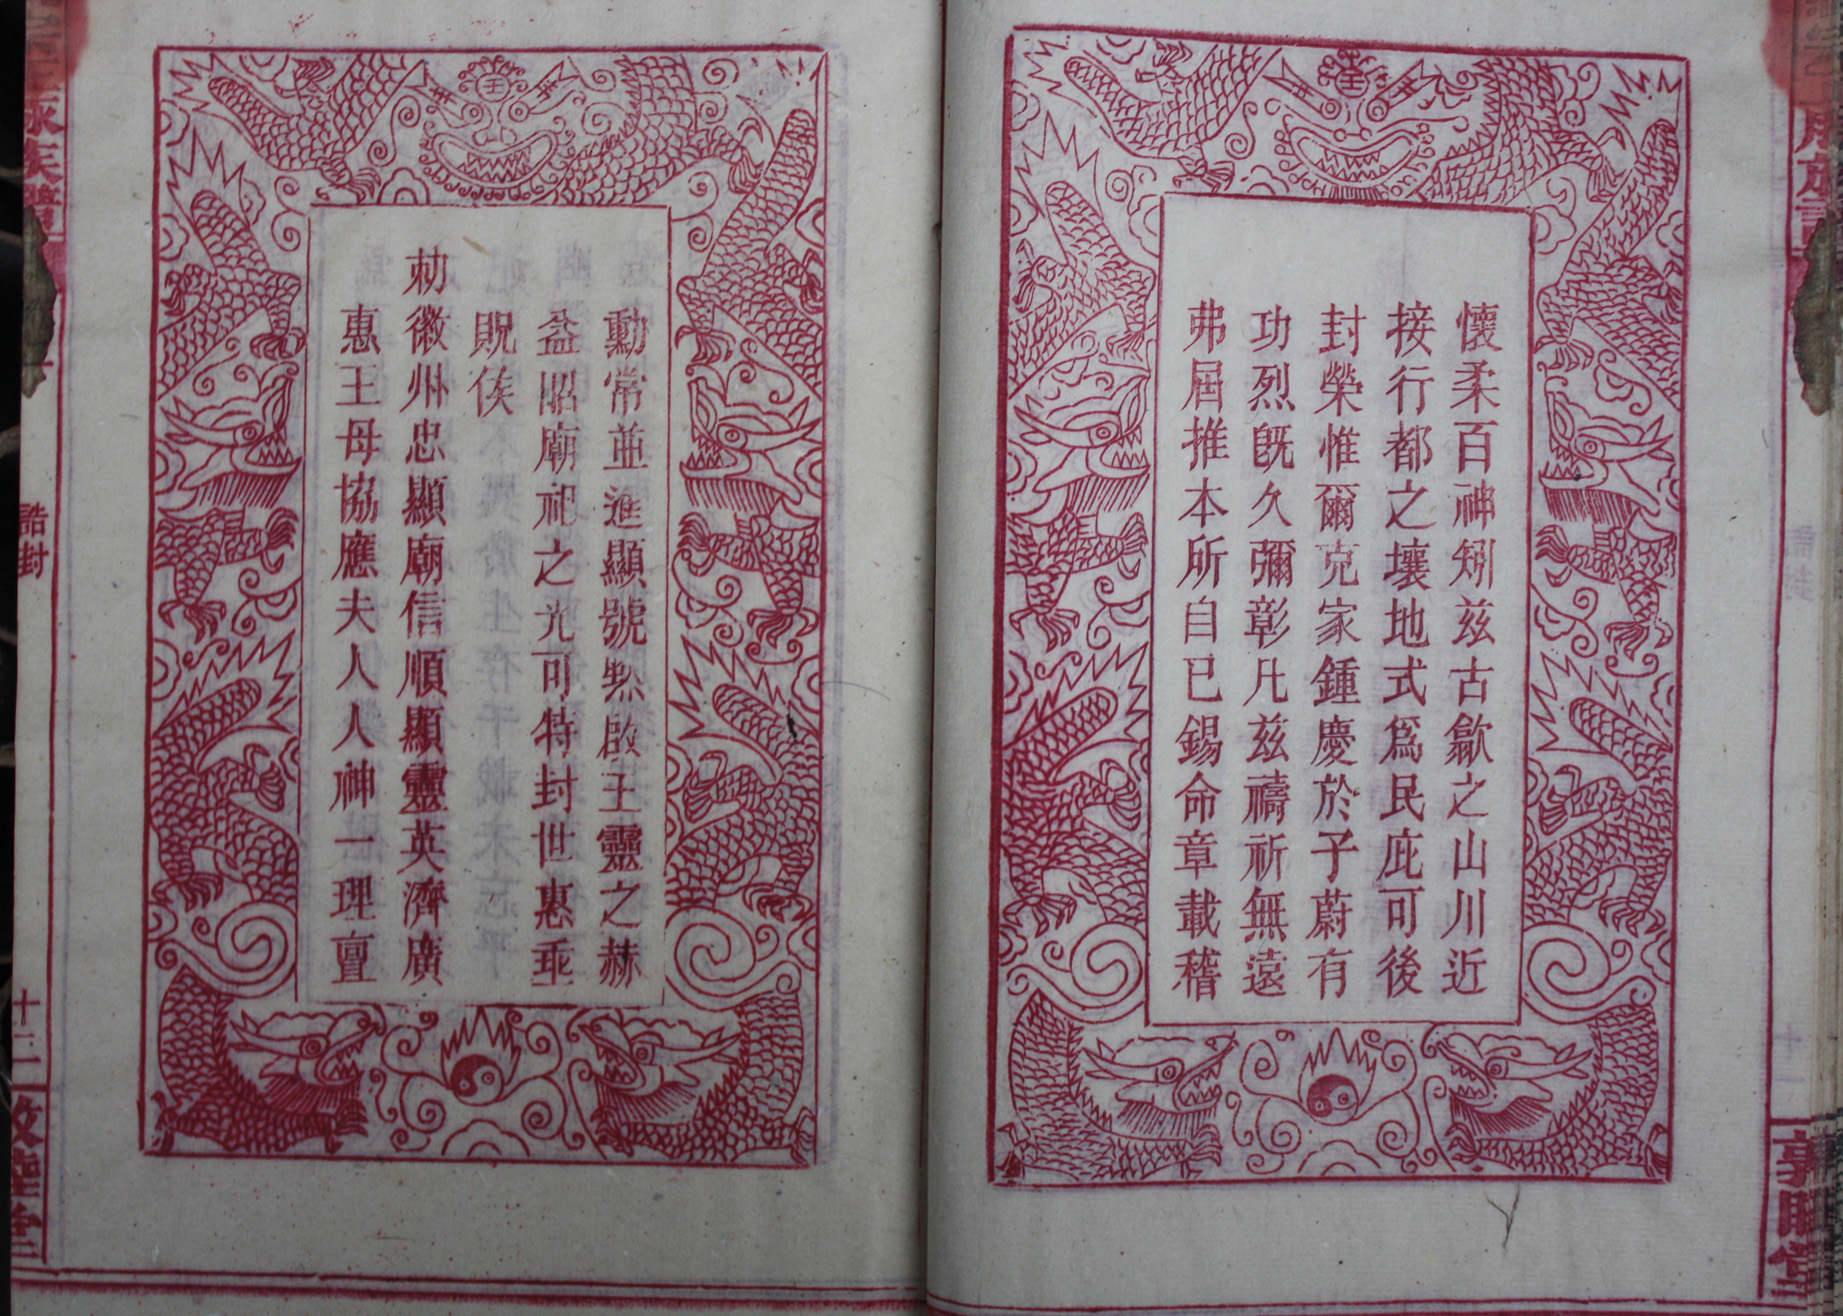 懷柔百神矧兹古歙之山川近
接行都之壤地式爲民庇可後
封榮惟爾克家鍾慶於予蔚有
功烈旣久彌彰凡兹禱祈無遠
弗屆推本所自已錫命章載稽
勳常並進顯號煕啟王靈之赫
益昭廟祀之光可特封世惠垂
貺侯
勑徽州忠顯廟信順顯靈英濟廣
惠王母協應夫人人神一理亶
誥封
十二
敦睦堂